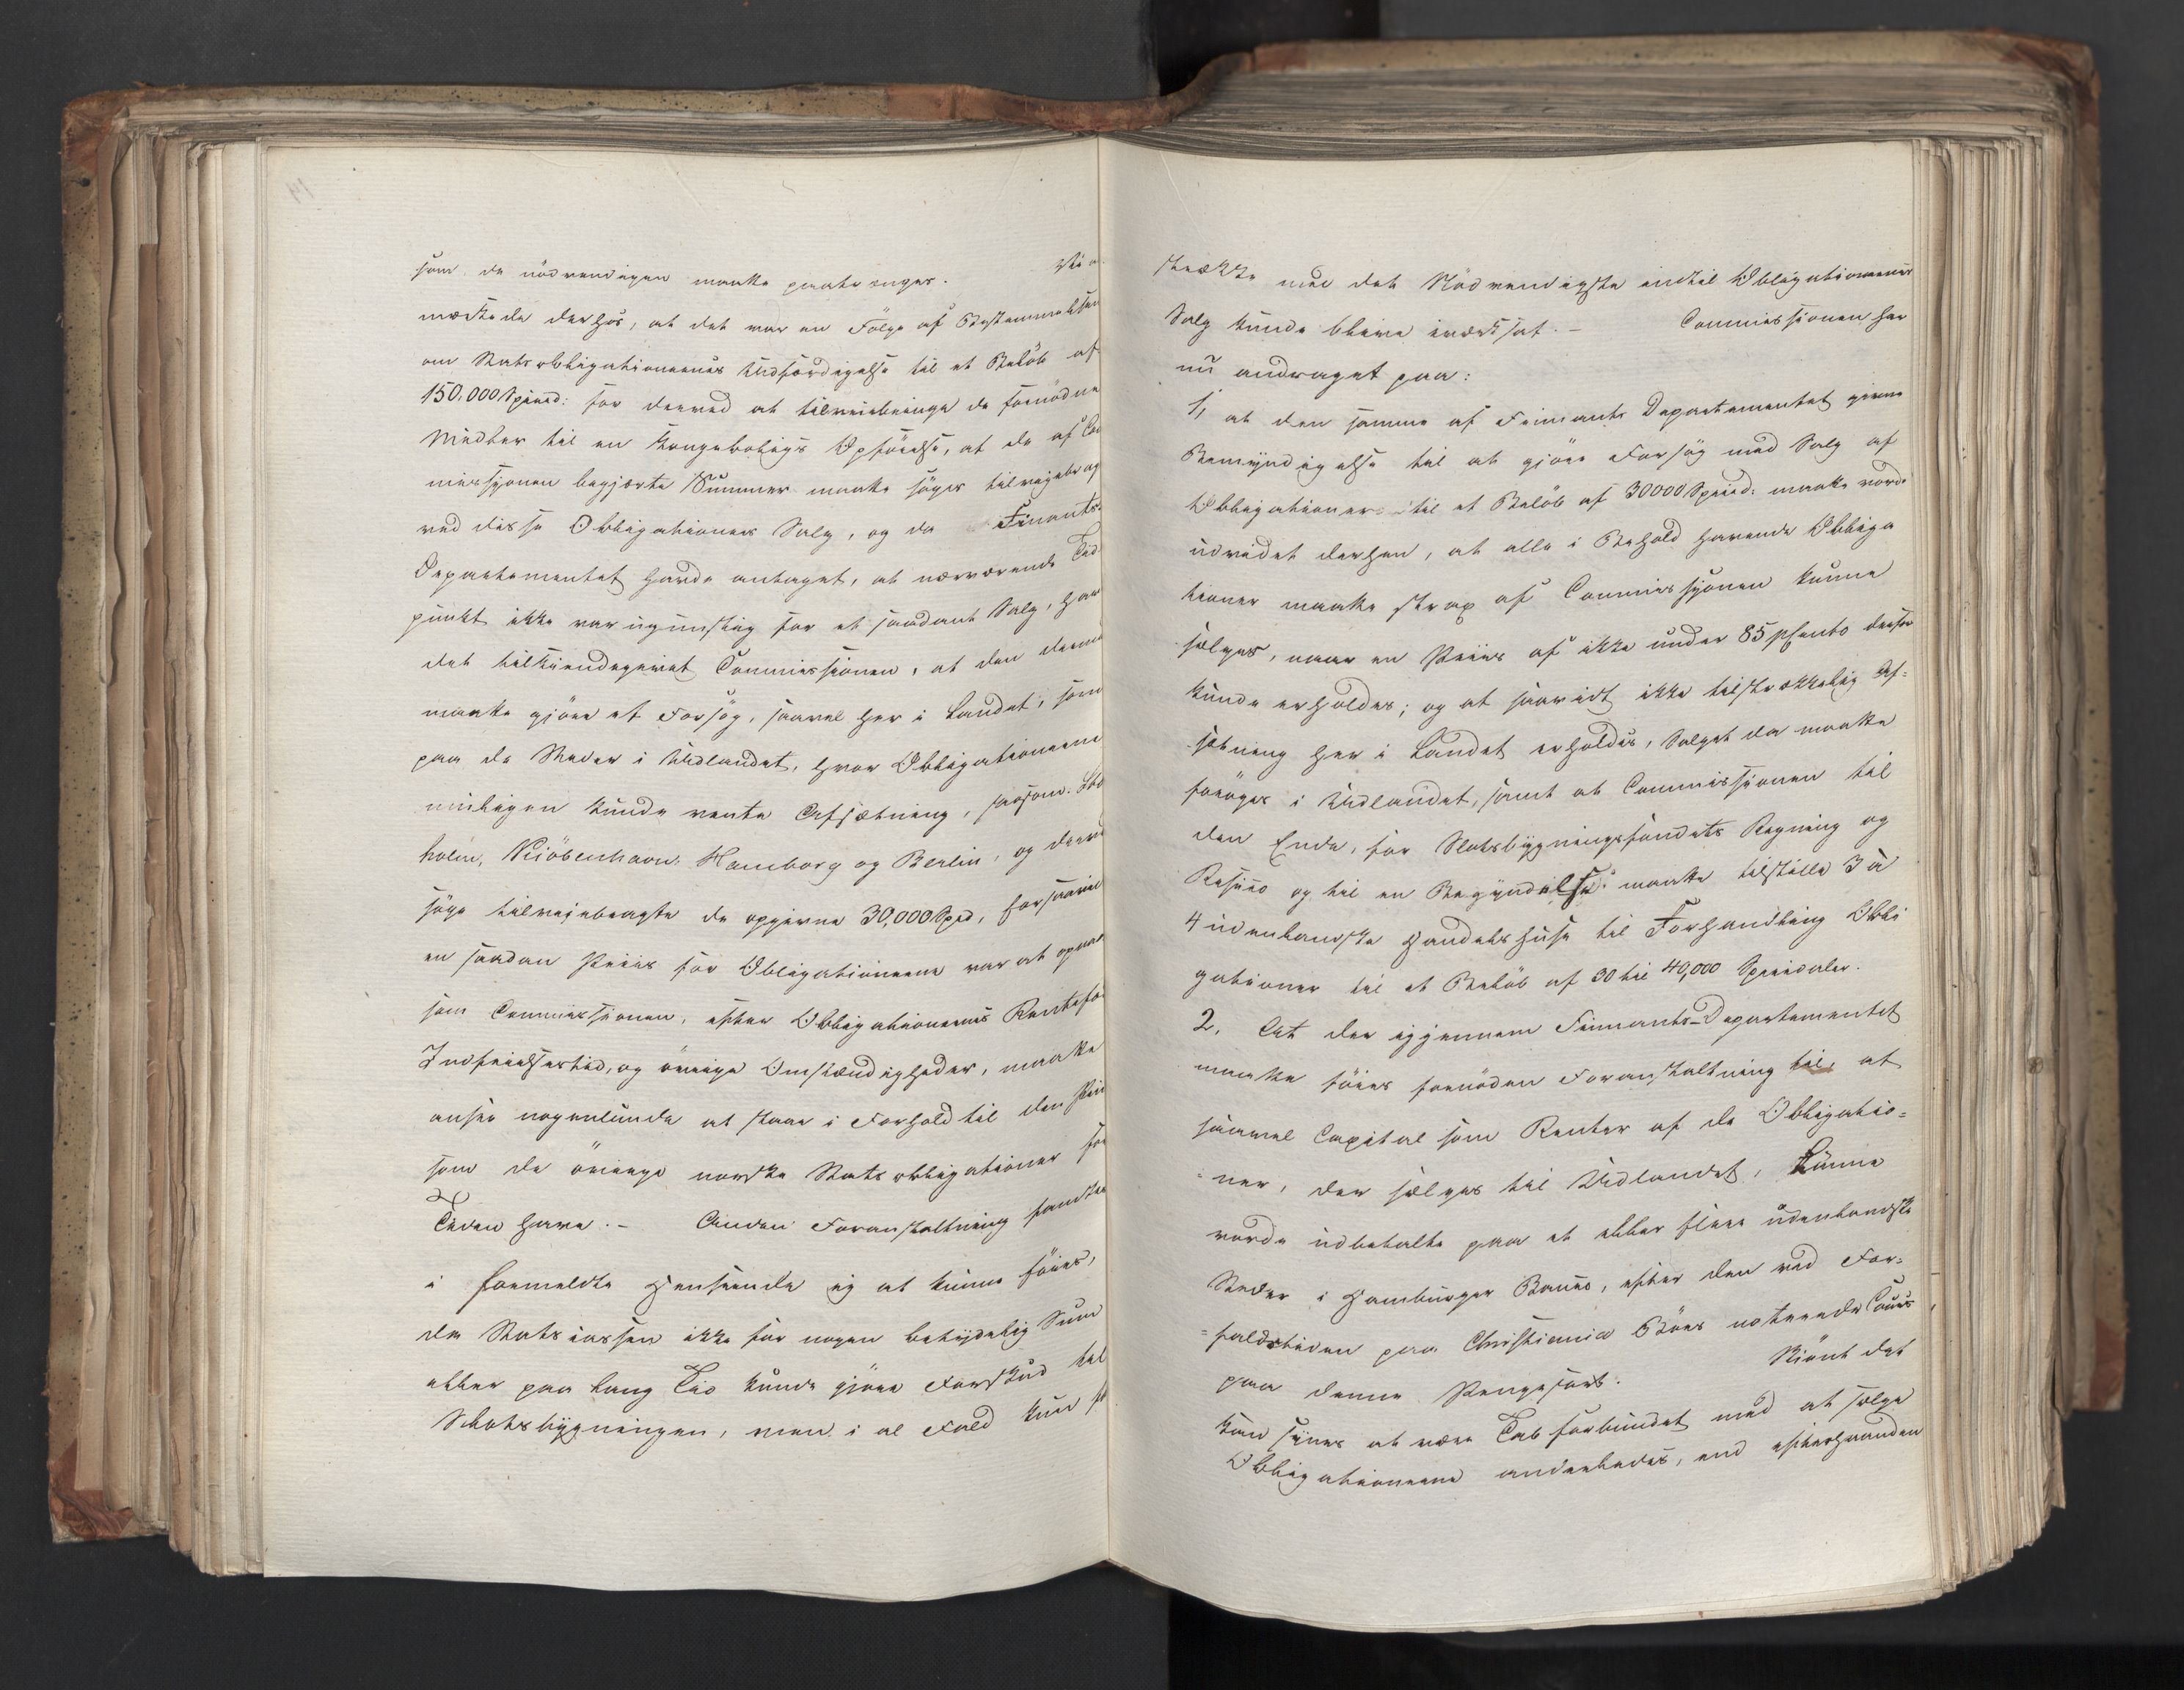 som de nödvendigen maatte paatrænges.
mærkede derhos, at det var en Fölge af Bestemmelsen
om Statsobligationernes Udfærdigelse til et Belöb af
150,000 Specd: for derved at tilveiebringe de fornödne
Midler til en Kongeboligs Opförelse, at de af Com
missionen begjerte Summer maatte söges tilvejebragt
ved disse Obligationers Salg, og da Finants-
Departementet havde antaget, at nærværende Tids
punkt ikke var ugunstig for et saadant Salg, har
det tilkiendegivet Commissionen, at den derom
maatte gjöre et Forsög, saavel her i Landet, som
paa de Steder i Udlandet, hvor Obligationerne
mueligen kunde vente Afsætning, saasom Stok
holm, Kiöbenhavn, Hamborg og Berlin, og derved
söge tilvejebragte de opgivne 30,000 Spd, forsaavidt
en saadan Priis for Obligationerne var at opnaae
som Commissionen, efter Obligationernes Rentefod
Indfrielsestid, og övrige Omstændigheder, maatte
ansee nogenlunde at staae i Forhold til den Priis
som de övrige norske Statsobligationer for
Tiden have. – Anden Foranstaltning fandtes
i formeldte Henseende ej at kunne föies,
da Statscassen ikke for nogen betydelig Sum
eller paa lang Tid kunde gjöre Forskud til
Slotsbygningen, men i al Fald kun
strække med det Nödvendigste indtil Obligationernes
Salg kunde blive iværksat. – Commissionen har
nu andraget paa:
1, at den samme af Finants Departementet givne
Bemyndigelse til at gjöre Forsög med Salg af
Obligationer til et Belöb af 30000 Specd: maatte vorde
udvidet derhen, at alle i Behold havende Obliga
tioner maatte strax af Commissionen kunne
sælges, naar en Priis af ikke under 85 pCento derfor
kunde erholdes; og at saavidt ikke tilstrækkelig Af-
sætning her i Landet erholdes, Salget da maatte
forsöges i Udlandet, samt at Commissionen til
den Ende, for Slotsbygningsfondets Regning og
Risico og til en Begyndelse maatte tilstille 3 à
4 udenlandske Handelshuse til Forhandling Obli
gationer til et Belöb af 30 til 40,000 Speciedaler.
2. At der igjennem Finants-Departementet
maatte föies fornöden Foranstaltning til, at
saavel Capital som Renter af de Obligatio-
ner, der sælges til Udlandet, kunne
vorde udbetalte paa et eller flere udenlandske
Steder i Hamburger Banco, efter den ved For-
faldstiden paa Christiania Börs noterede Cours
paa denne Pengesort. Skiönt det
kan synes at være Tab forbundet med at sælge
Obligationerne anderledes, end efterhaanden